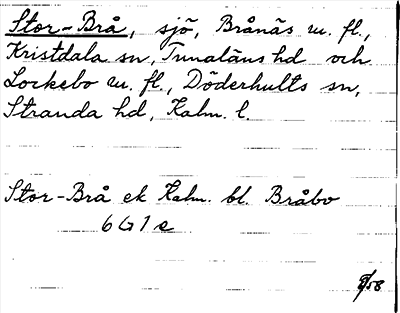 Stor-Brå, sjö, Brånäs m. fl.,
Kristdala sn, Tunaläns hd och
Lockebo m. fl., Döderhults sn,
Stranda hd, Kalm. l.
Stor-Brå ek Kalm. bl. Bråbo
6G1e